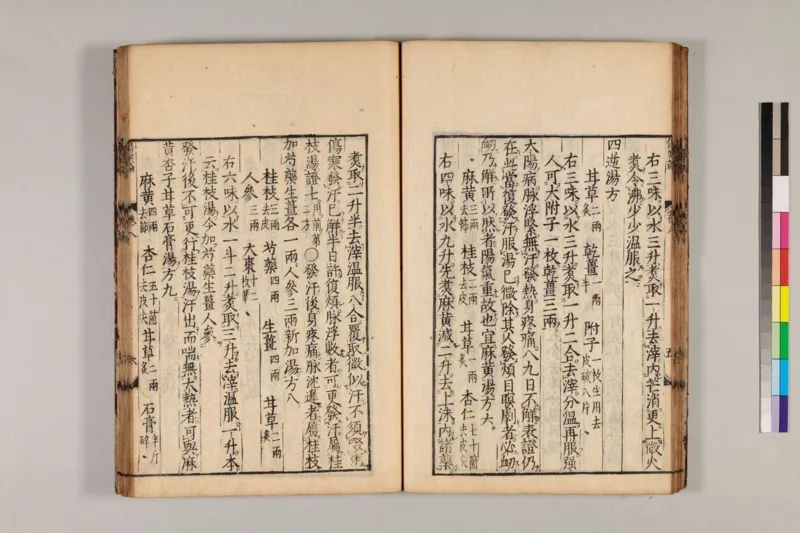 右三味以水三升煮取一升去滓内芒消更上微火
煮令沸少少温服之
四逆湯方
甘草二兩炙 乾薑一兩半 附子一枚生用去皮破八片
右三味以水三升煮取一升二合去滓分温再服强
人可大附子一枚乾薑三兩
太陽病脉浮緊無汗發熱身疼痛八九日不解表證仍
在此當復發汗服湯已微除其人發煩目瞑劇者必衂
衂乃解所以然者陽氣重故也宜麻黄湯方六
麻黄三兩去節 桂枝二兩去皮 甘草一兩炙 杏仁七十箇去皮尖
右四味以水九升先煮麻黄減二升去上沫内諸藥
煮取二升半去滓温服八合覆取微似汗不須
傷寒發汗已解半日許復煩脉浮數者可更發汗屬桂
枝湯證七用前第二方○發汗後身疼痛脉沈遲者屬桂枝
加芍藥生薑各一兩人參三兩新加湯方八
桂枝三兩去皮 芍藥四兩 生薑四兩 甘草二兩炙
人參三兩 大棗十二枚擘
右六味以水一斗二升煮取三升去滓温服一升本
云桂枝湯今加芍藥生薑人參
發汗後不可更行桂枝湯汗出而喘無大熱者可與麻
黄杏子甘草石膏湯方九
麻黄四兩去節 杏仁五十箇去皮尖 甘草二兩炙 石膏半斤碎